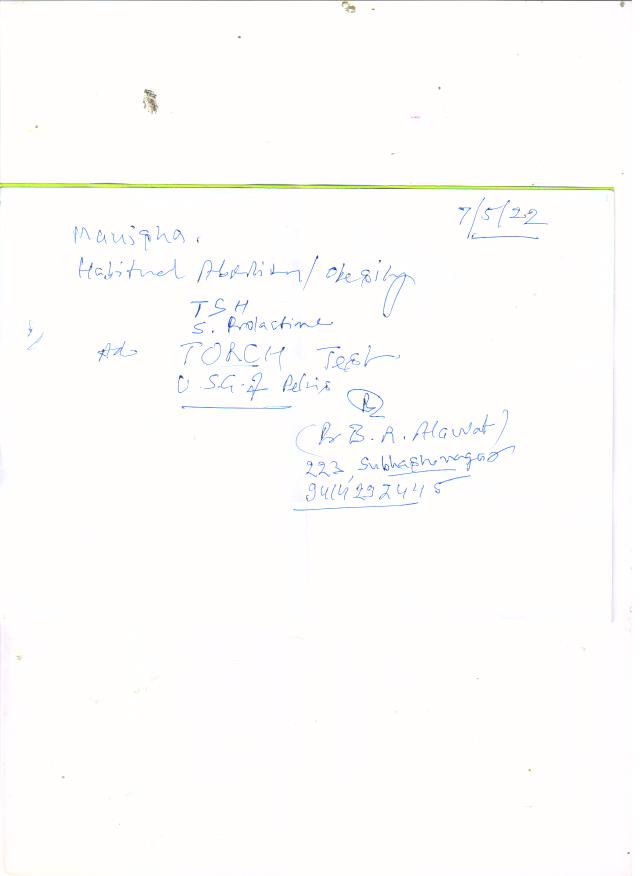 7/5/22
Manisha.
Habitual Abortion / Obesity
TSH
S. Prolactine
Ad TORCH Test
U.S.G. of Pelvis
(Dr B. R. Alawat)
223, Subhashnagar
9414292445